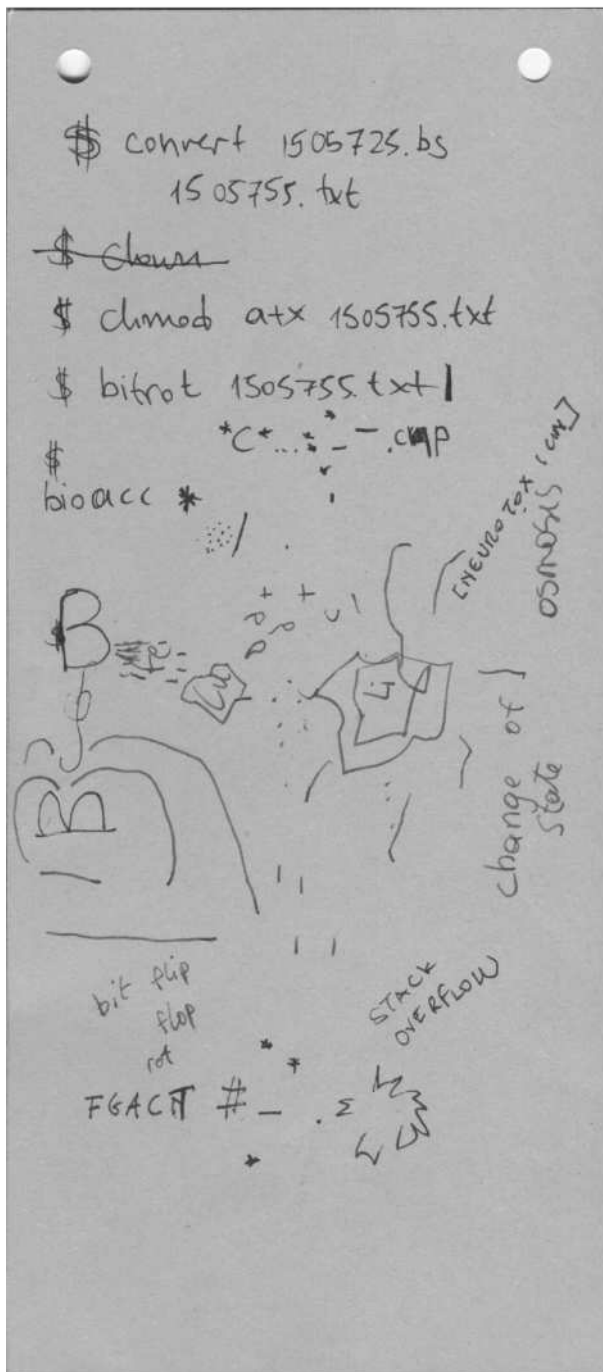 $ convert 1505725.bs
1505755.txt
$ chmod a+x 1505755.txt
$ bitrot 1505755.txt |
*C*...*_-.cmp
$
bioacc *
[NEUROTOX
OSMOSIS
B
Cu
Li
change of
state
B
bit flip
flop
rot
STACK
OVERFLOW
FGACT #_ .Σ